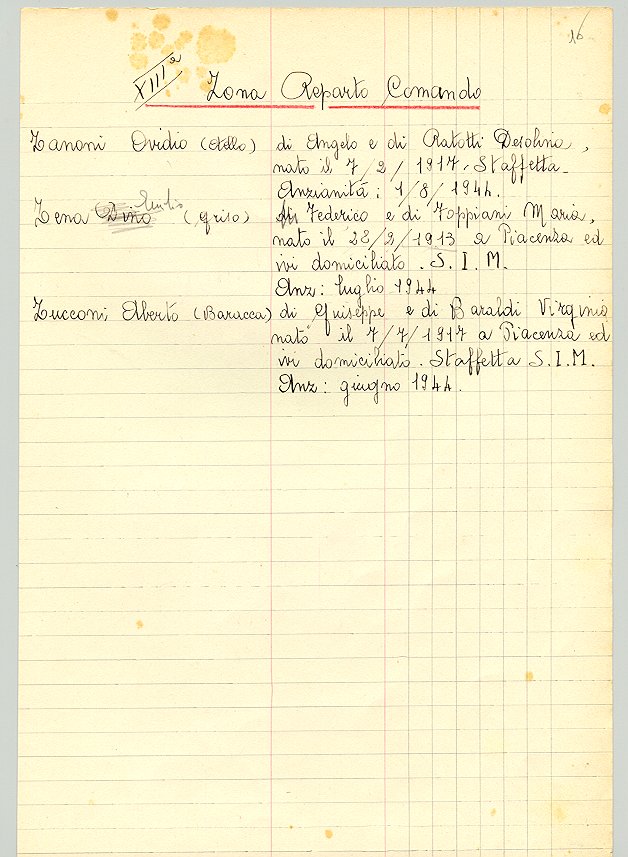 16
XIIIª Zona Reparto Comando
Zanoni Ovidio (Otello) di Angelo e di Ratotti Desolina,
nato il 7/2/1917. Staffetta.
Anzianità: 1/8/1944.
Zena Dino Emilio (Griso) di Federico e di Toppiani Maria,
nato il 28/2/1913 a Piacenza ed
ivi domiciliato. S.I.M.
Anz: luglio 1944
Zucconi Alberto (Baracca) di Giuseppe e di Baraldi Virginio
nato il 7/7/1917 a Piacenza ed
ivi domiciliato. Staffetta S.I.M.
Anz: giugno 1944.